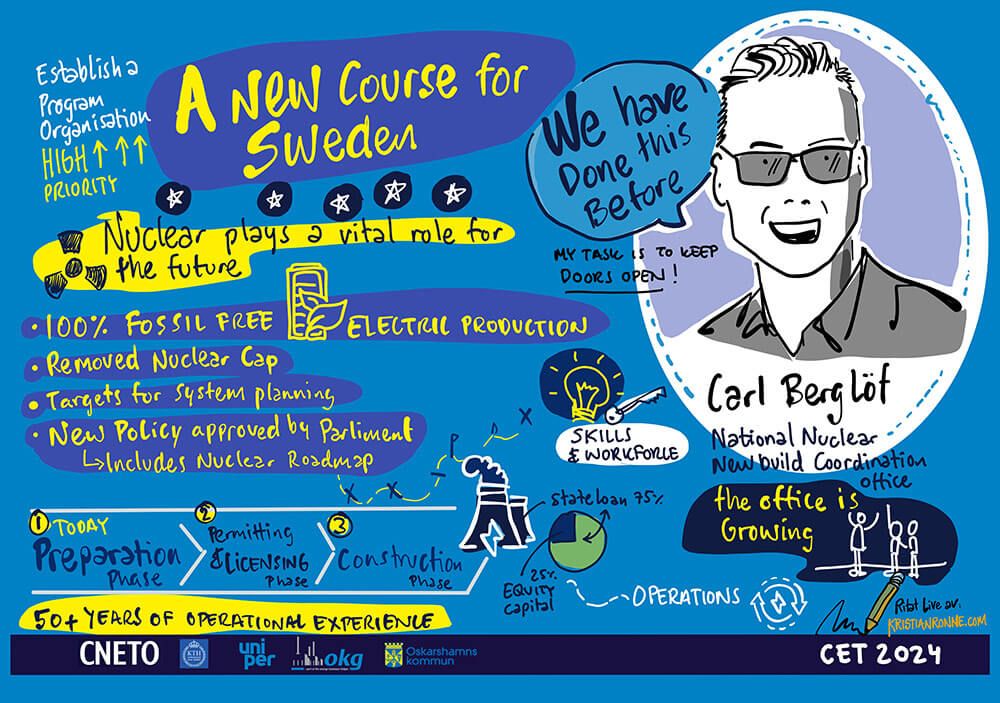 Establish a
Program
Organisation
HIGH ↑ ↑ ↑
PRIORITY
A New Course for
Sweden
We have
Done this
Before
MY TASK IS TO KEEP
DOORS OPEN!
Nuclear plays a vital role for
the future
• 100% FOSSIL FREE ELECTRIC PRODUCTION
• Removed Nuclear Cap
• Targets for System planning
• New Policy approved by Parliment
↳ Includes Nuclear Roadmap
SKILLS
& WORKFORCE
Carl Berglöf
National Nuclear
New build Coordination
office
the office is
Growing
1 TODAY
Preparation
Phase
2
Permitting
& LICENSING
Phase
3
Construction
Phase
State loan 75%
25%
EQUITY
Capital
OPERATIONS
50+ YEARS OF OPERATIONAL EXPERIENCE
Ritat Live av:
KRISTIANRONNE.COM
CNETO
KTH
uni
per
okg
Oskarshamns
kommun
CET 2024